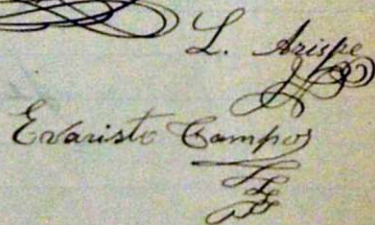 L. Arispe
Evaristo Campos